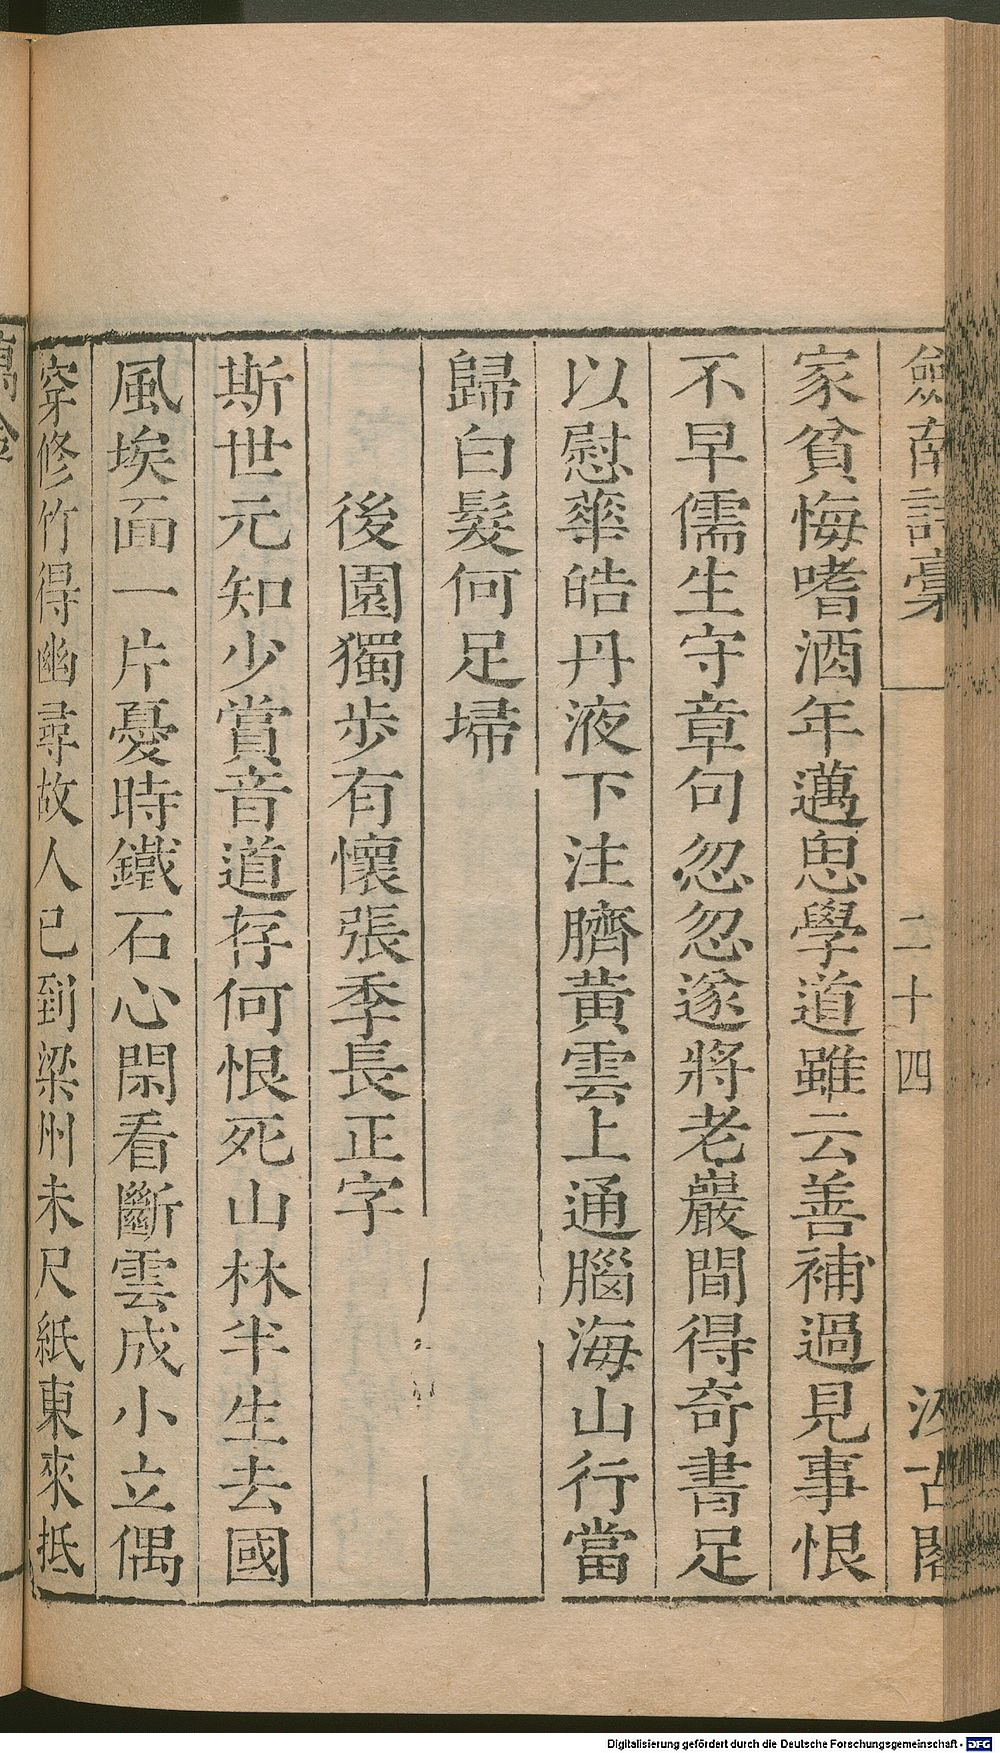 劍南詩稾 二十四 汲古閣
家貧悔嗜酒年邁思學道雖云善補過見事恨
不早儒生守章句忽忽遂將老巖間得奇書足
以慰華皓丹液下注臍黃雲上通腦海山行當
歸白髮何足埽
後園獨步有懷張季長正字
斯世元知少賞音道存何恨死山林半生去國
風埃面一片憂時鐵石心閑看斷雲成小立偶
穿修竹得幽尋故人已到梁州未尺紙東來抵
萬金
Digitalisierung gefördert durch die Deutsche Forschungsgemeinschaft - DFG